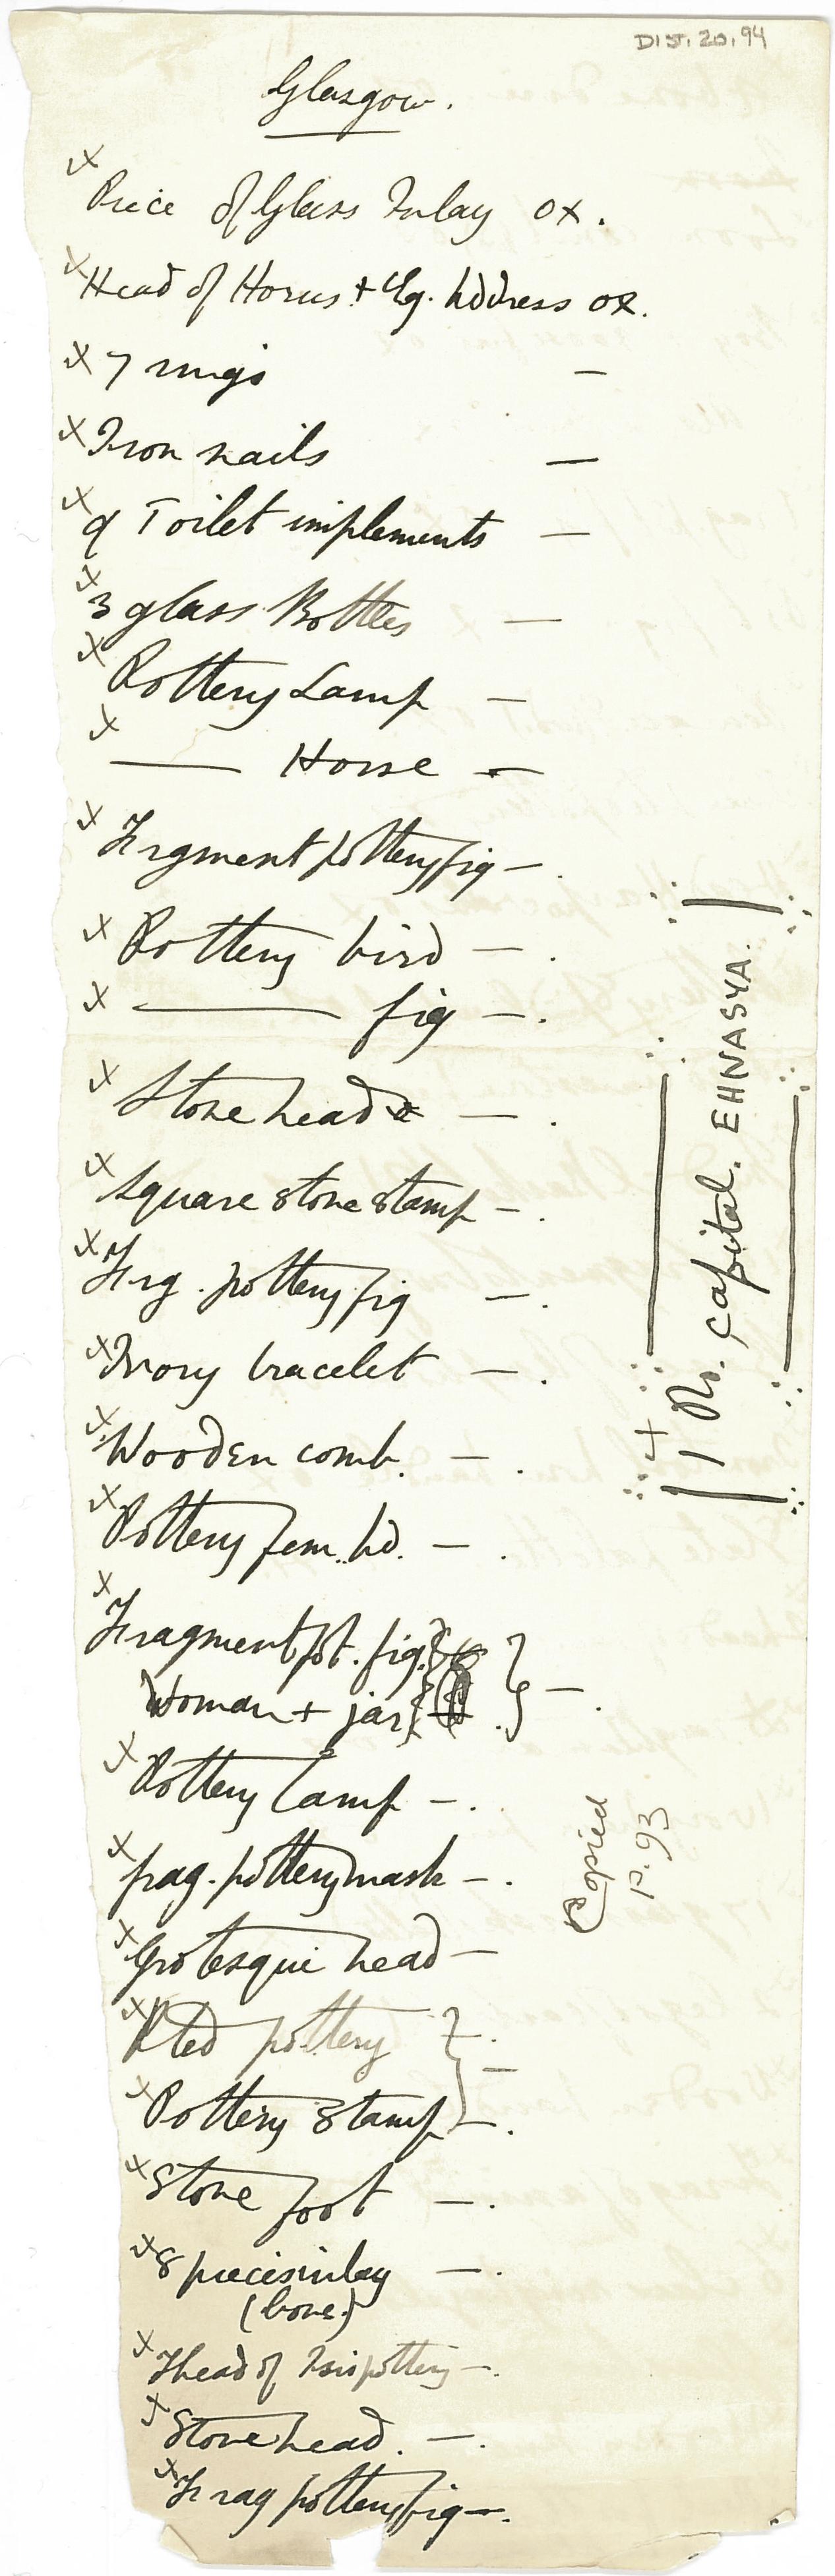 DIST. 20.94
Glasgow.
x Piece of Glass Inlay Ox.
x Head of Horus + Eg. hddress ox.
x 7 rings —
x Iron nails —
x 9 Toilet implements —
x 3 glass Bottles —
x Pottery Lamp —
x —— Horse —
x Frgment pottery fig — .
x Pottery bird — .
x —— fig — .
x Stone head — .
x Square stone stamp — .
x Frg. pottery fig — .
x Ivory bracelet — .
x Wooden comb. — .
x Pottery fem. hd. — .
x Fragment pot. fig. }
Woman + jar } — .
x Pottery Lamp — .
x frag. pottery mask — .
x Grotesque head —
x Pted pottery } — .
x Pottery stamp } — .
x Stone foot — .
x 8 pieces inlay — .
(bone)
x Head of Isis pottery — .
x Stone head. — .
x Frag pottery fig — .
x 1 Ro. capital. EHNASYA.
Copied
P. 93